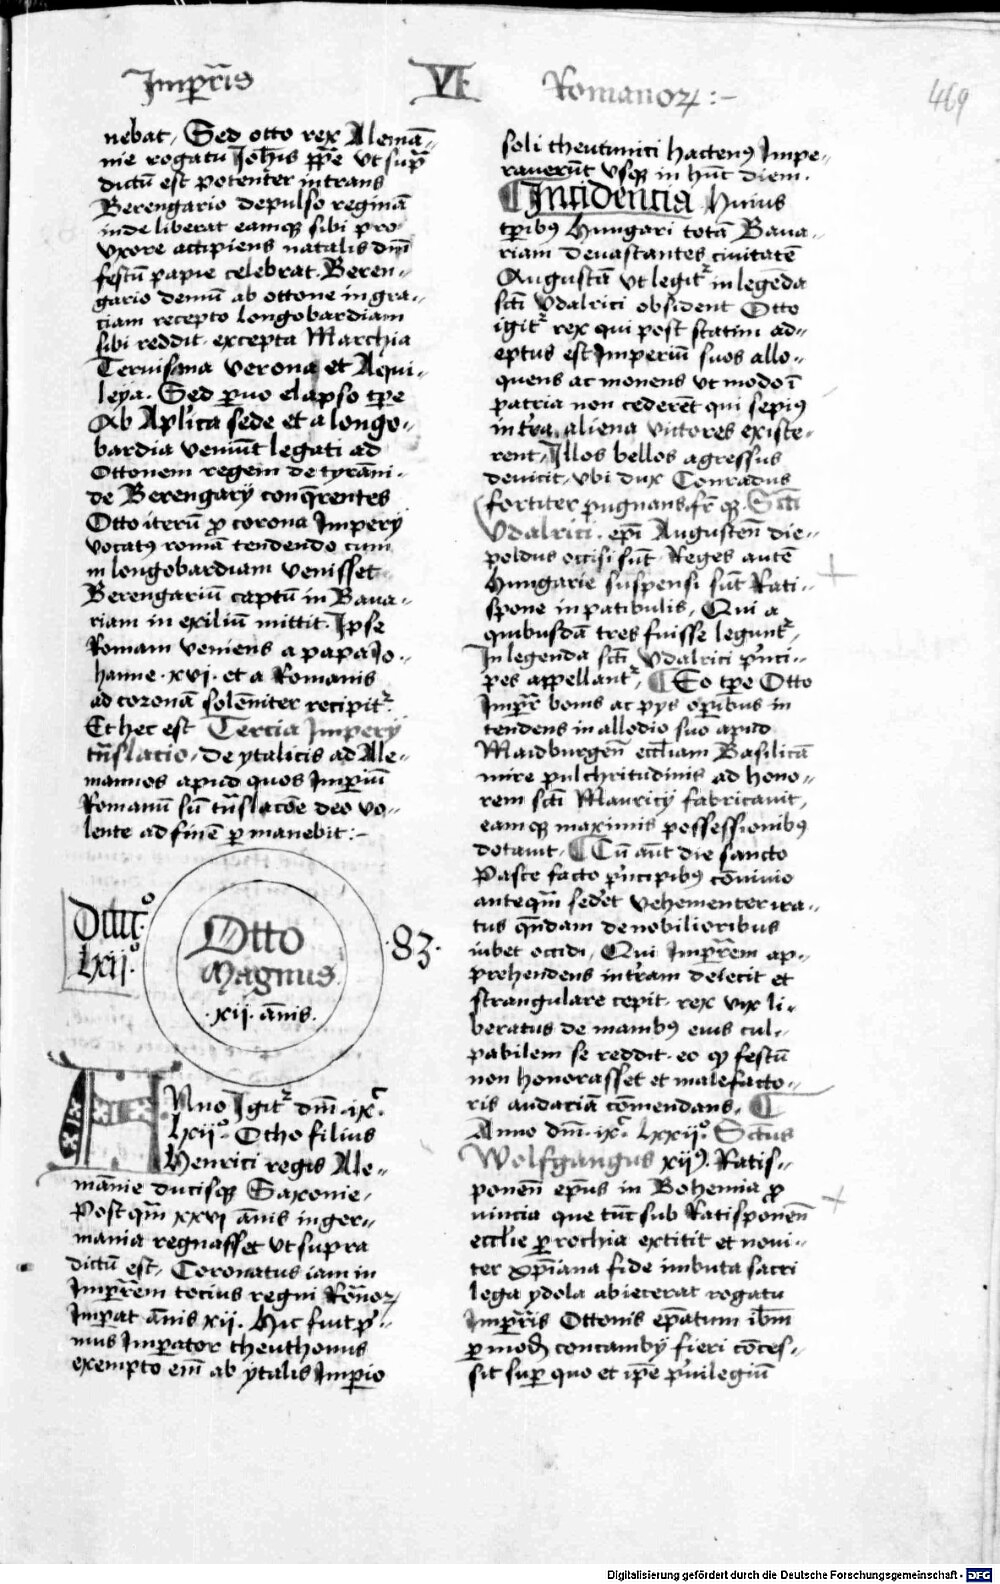 Imp̄ris VI Romanoꝝ :–
469
nebat, Sed otto rex Alemā-
nie rogatu Joh̄is pp̄e vt sup̄
dictū est potenter intrans
Berengario depulso reginā
inde liberat eamqꝫ sibi pro
vxore accipiens natalis dn̄i
festū papie celebrat. Beren-
gario demū ab ottone in gra-
ciam recepto longobardiam
sibi reddit. excepta Marchia
Teruisina verona et Aqui-
leya. Sed ꝑuo elapso tp̄e
Ab Apl'ica sede et a longo-
bardia veniūt legati ad
Ottonem regem de tyrāni-
de Berengarij conq̄rentes
Otto iterū ꝓ corona Imperij
vocatꝰ romā tendendo cum
in longobardiam venisset
Berengariū captū in Baua-
riam in exiliū mittit. Ipse
Romam veniens a papa Jo-
hanne .xvi. et a Romanis
ad coronā solēniter recipitᷣ.
Et hec est Tercia Imperij
tn̄slacio, de ytalicis ad Ale-
mannos apud quos Imꝑiū
Romanū sn̄ tn̄slacōe deo vo-
lente ad finē ꝑmanebit :–
Dcccc°
lxij°.
Otto
Magnus
.xij. ānis.
.83.
Anno Igitᷣ dn̄i .ixᶜ.
lxij°. Otho filius
Henrici regis Ale-
mānie ducisqꝫ Saxonie,
Postqm̄ xxvi ānis in ger-
mania regnasset vt supra
dictū est, Coronatus iam in
Imp̄rem tocius regni Rōnoꝝ
Imꝑat ānis xij. Hic fuit p̄-
mus Imꝑator theuthonus
exempto em̄ ab ytalis Imꝑio
soli theutunici hactenꝰ Impe-
rauerūt vsqꝫ in hūc diem.
¶ Incidencia Huius
tp̄ibꝰ Hungari totā Baua-
riam deuastantes ciuitatē
Augustā vt legitᷣ in legēda
sct̄i vdalrici obsident Otto
igitᷣ rex qui post statim ad-
eptus est Imperiū suos allo-
quens ac monens vt modo ī
patria non cederēt qui sepiꝰ
in tr̄a aliena victores existe-
rent, Illos bellos agressus
deuicit, vbi dux Conradus
fortiter pugnans, fr̄ qꝫ. Sct̄i
Vdalrici. ep̄i Augusten̄ die-
poldus occisi sūt. Reges autē
Hungarie suspensi sūt Rati-
spone in patibulis, Qui a
quibusdā tres fuisse leguntᷣ,
In legenda sct̄i vdalrici p̄nci-
pes appellantᷣ, ¶ Eo tp̄e Otto
Imp̄r bonis ac pijs oꝑibus in
tendens in allodio suo apud
Maidburgen̄ eccl'iam Basilicā
mire pulchritudinis ad hono-
rem sct̄i Mauricij fabricauit,
eamqꝫ maximis possessionibꝰ
dotauit, ¶ Cū aūt die sancto
Pasce facto p̄ncipibꝰ cōuiuio
anteqm̄ sedēt vehementer ira-
tus qn̄dam de nobilioribus
iubet occidi, Qui Imp̄rem ap-
prehendens in tr̄am deiecit et
strangulare cepit. rex vix li-
beratus de manibꝰ eius cul-
pabilem se reddit. eo qꝫ festū
non honorasset et malefacto-
ris audaciā cōmendans. ¶
Anno dn̄i .ixᶜ. lxxij°. Sctus
Wolfgangus xijꝰ. Ratis-
ponen̄ ep̄us in Bohemia ꝓ
uincia que tūc sub Ratisponen̄
eccl'ie ꝑrochia extitit et noui-
ter xp̄iana fide imbuta sacri
lega ydola abiecerat rogatu
Imp̄ris Ottonis ep̄atum ibm̄
ꝑ mod̄ concambij fieri cōces-
sit suꝑ quo et ip̄e p̄uilegiū
Digitalisierung gefördert durch die Deutsche Forschungsgemeinschaft - DFG